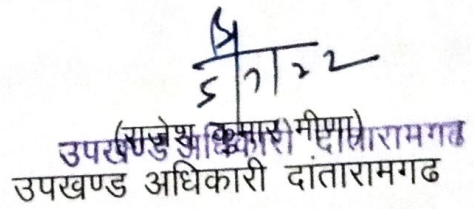 5/7/22
(राजेश कुमार मीणा)
उपखण्ड अधिकारी दांतारामगढ
उपखण्ड अधिकारी दांतारामगढ